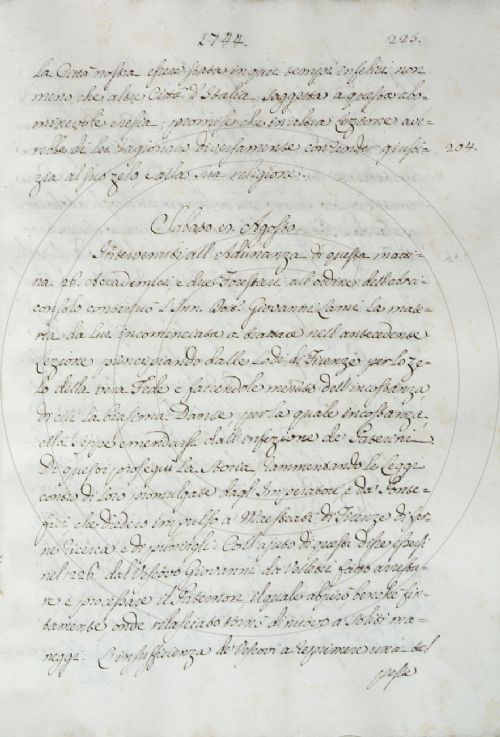 1744. 225.
la Città nostra essere stata in quei tempi infelici non
meno che altre Città d'Italia soggetta a questa abo-
minevole eresia; promise che in altra Lezione avre-
rebbe di lei ragionato diversamente con render giusti- 204.
zia al suo zelo e alla sua religione.
Sabato 22 Agosto.
Intervenuti all'Adunanza di questa matti-
na 26. Accademici e due Forestieri all'ordine dell'Arci-
consolo continuò l'Ann. Dott. Giovanni Lami la mate-
ria da lui incominciata a trattare nell'antecedente
Lezione principiando dalle Lodi di Firenze per lo ze-
lo della vera Fede e facendole merito dell'incostanza
di cui la biasima Dante per la quale incostanza
ella seppe emendarsi dall'infezione de' Paterini
Di questi proseguì la Storia rammentando le Leggi
contro di loro promulgate dagl'Imperatori e da' Ponte-
fici che diedero impulso a' Maestrati di Firenze di far-
ne ricerca e di punirgli. Coll'ajuto di questi disse essersi
nel 1226. dal Vescovo Giovanni da Velletri fatto arresta-
re e processare il Paternon, il quale abjurò benchè fin-
tamente onde rilasciato tornò di nuovo a' soliti ma-
neggi. L'insufficienza de' Vescovi a reprimere una tal
peste